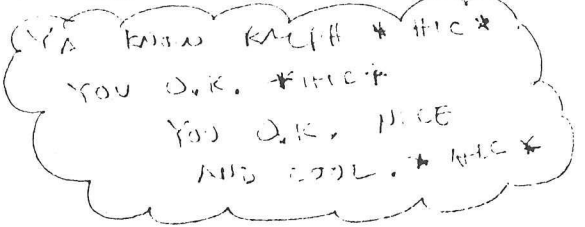 YA KNOW RALPH *HIC*
YOU O.K. *HIC*
YOU O.K. NICE
AND COOL. *HIC*